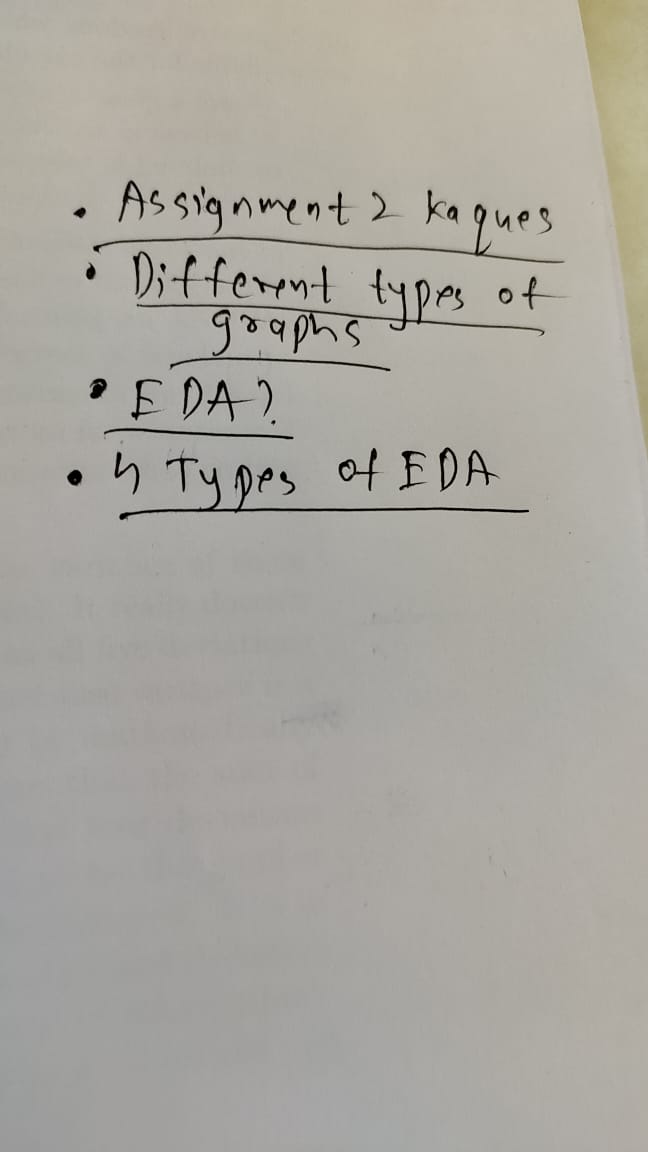 • Assignment 2 ka ques
• Different types of
graphs
• EDA?
• 4 Types of EDA